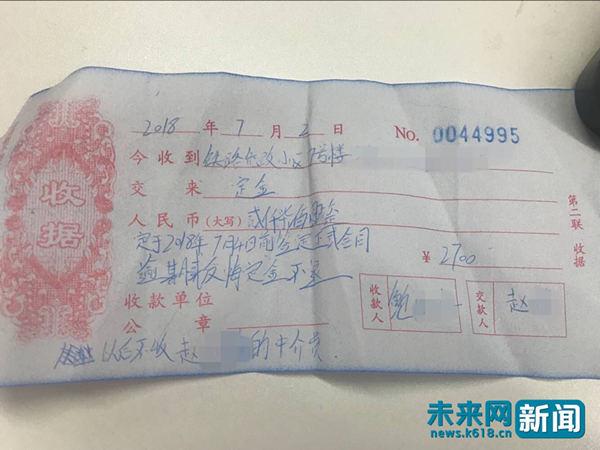 收据
2018年7月2日 No. 0044995
今收到 铁路 小区 号楼
交来 定金
人民币(大写) 贰仟柒佰
定于2018年7月4日前签定正式合同 ¥ 2700
逾期 定金不退
收款单位
公章
收款人 鲍
交款人 赵
以后不收赵 的中介费
第二联 收据
未来网 新闻
www.k618.cn news.k618.cn